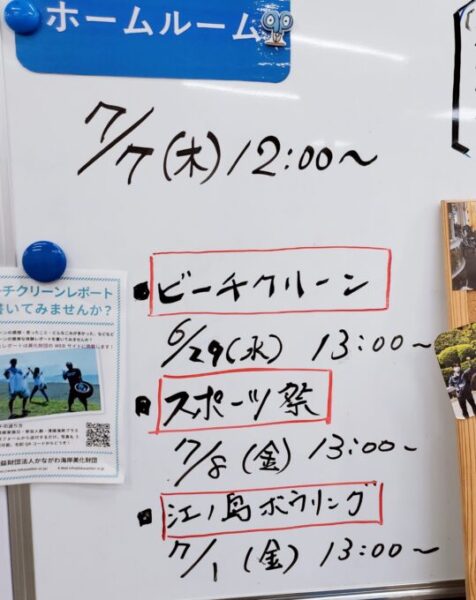 ホームルーム
7/7(木)12:00~
ビーチクリーン
6/29(水) 13:00~
スポーツ祭
7/8(金)13:00~
江ノ島ボウリング
7/1(金)13:00~
チクリーンレポート
書いてみませんか?
益財団法人かながわ海岸美化財団